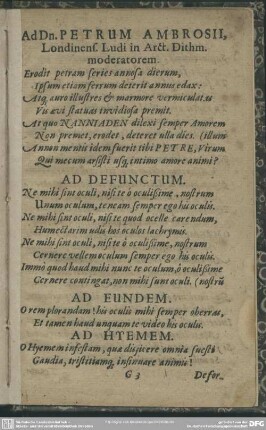 Ad Dn. PETRUM AMBROSII,
Londinens. Ludi in Arct. Dithm.
moderatorem.
Erodit petram series annosa dierum,
Ipsum etiam ferrum deterit annus edax:
Atq, auro illustres & marmore vermiculatas
Vis ævi statuas invidiosa premit.
At quo NANNIADEN dilexi semper Amorem
Non premet, erodet, deteret ulla dies. (illum
Annon mentis idem fuerit tibi PETRE, Virum
Qui mecum arsisti usq, intimo amore animi?
AD DEFUNCTUM.
Ne mihi sint oculi, nisi te ô oculissime, nostrum
Unum oculum, teneam semper ego his oculis.
Ne mihi sint oculi, nisi te quod ocelle carendum,
Humectarim udis hos oculos lachrymis.
Ne mihi sint oculi, nisi te ô oculissime, nostrum
Cernere vellem oculum semper ego his oculis.
Immò quod haud mihi nunc te oculum, ô oculissime
Cernere contingat, non mihi sunt oculi. (nostrû
AD EUNDEM.
O rem plorandam! his oculis mihi semper oberras,
Et tamen haud unquam te video his oculis.
AD HYEMEM.
O Hyemem infestam, quæ disjicere omnia suesti
Gaudia, tristitiamq, insinuare animis!
G 3 Defor-